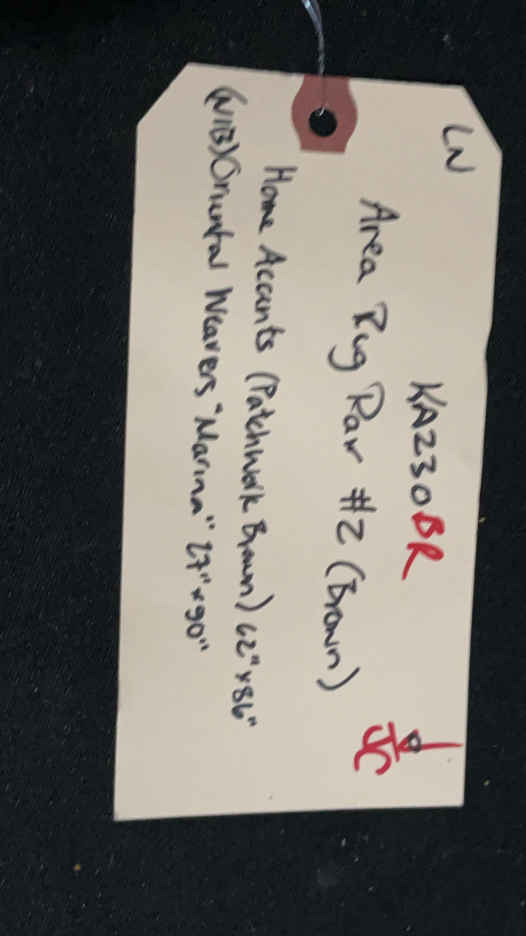 LN
KA230BR
Area Rug Pair #2 (Brown)
Home Accents (Patchwork Brown) 62"x86"
(NIB) Oriental Weavers "Marina" 27"x90"